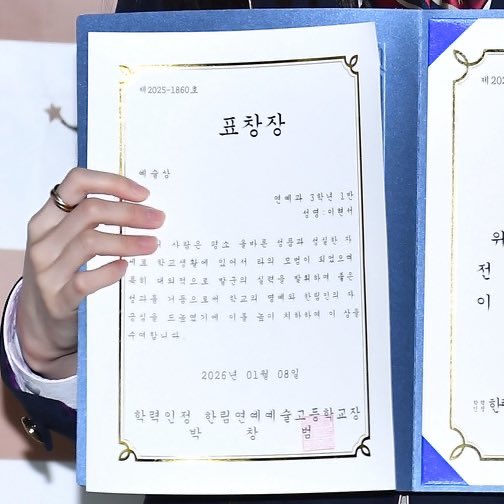 제2025-1860호
표창장
예술상
연예과 3학년 1반
성명:이현서
사람은 평소 올바른 성품과 성실한 자
세로 학교생활에 있어서 타의 모범이 되었으며
특히 대외적으로 발군의 실력을 발휘하며 좋은
성과를 거둠으로써 학교의 명예와 한림인의 자
긍심을 드높였기에 이를 높이 치하하며 이 상을
수여합니다.
2026년 01월 08일
학력인정 한림연예예술고등학교장
박 창 범
제202
위
전
이
학력
인정